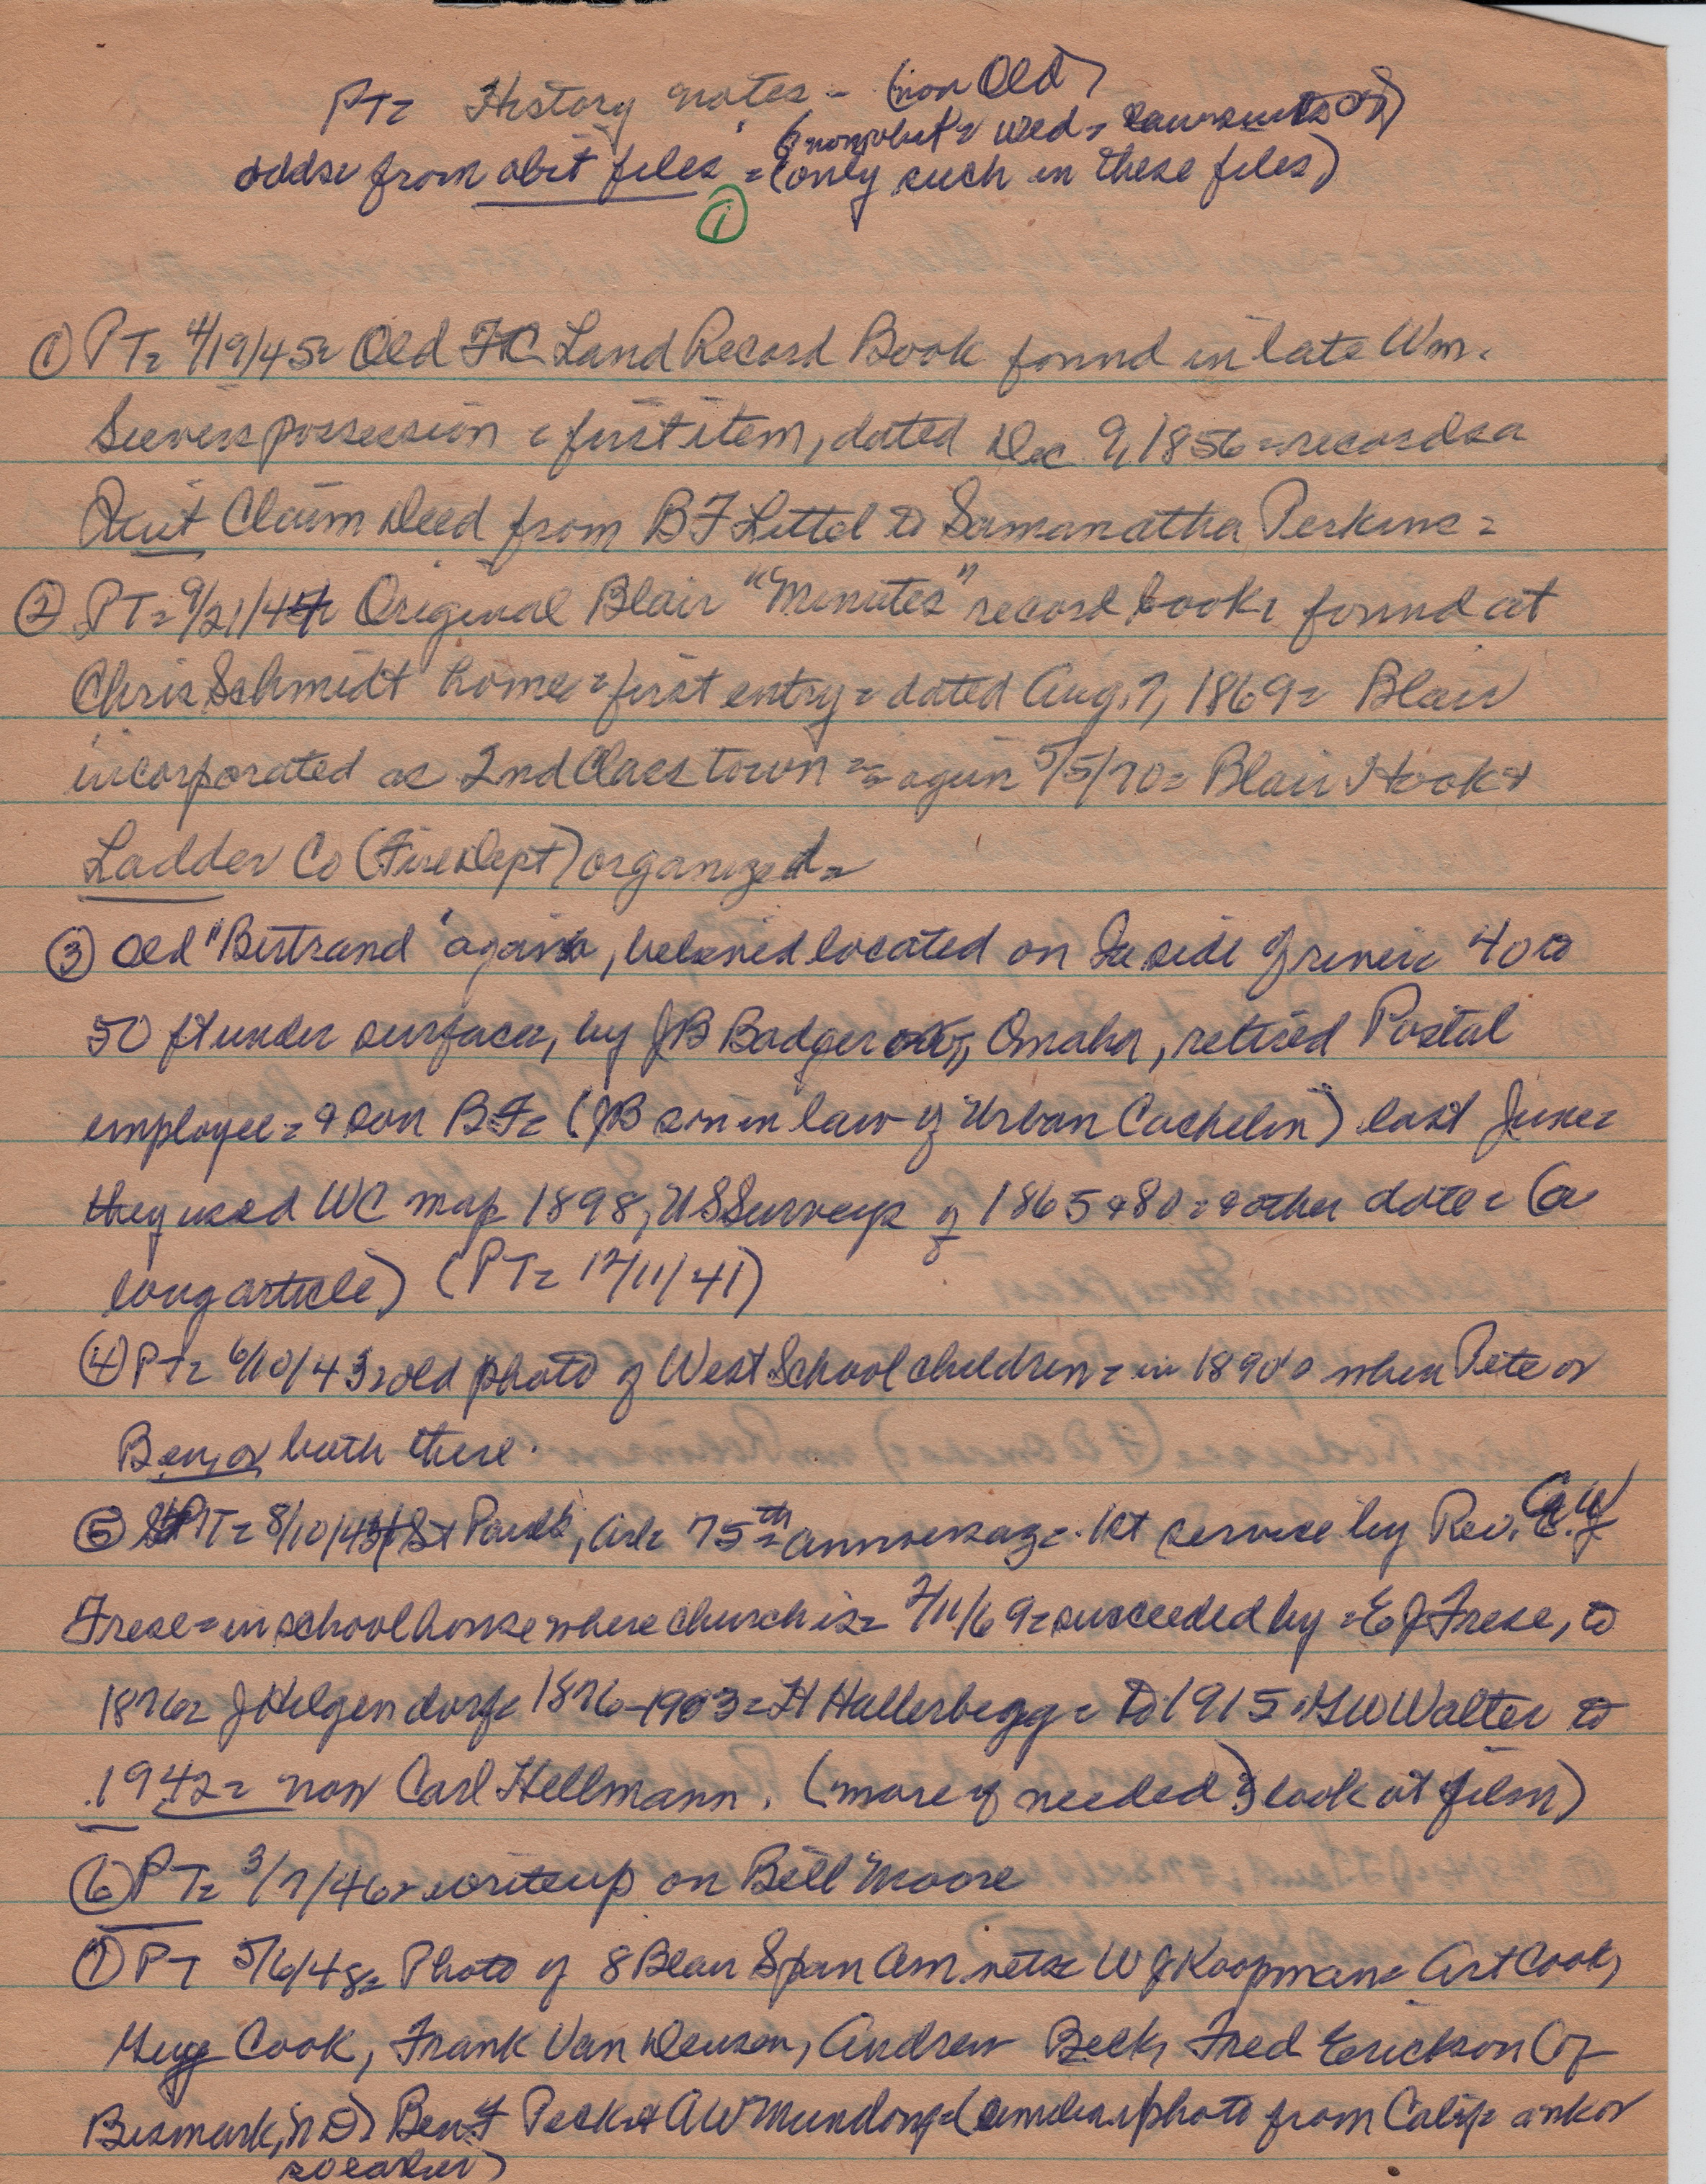 PT= History notes - (non Old)
(nonobit = wed =
odds from obit files = (only such in these files)
1
① PT= 4/19/45= Old FC Land Record Book found in late Wm.
Seevers possession = first item, dated Dec 9, 1856 = records a
Quit Claim Deed from BF Littel to Samanatha Perkins =
② PT= 9/21/44= Original Blair "Minutes" record book, found at
Chris Schmidt home = first entry = dated Aug. 7, 1869= Blair
incorporated as 2nd Class town == again 5/5/70= Blair Hook &
Ladder Co (Fire Dept) organized=
③ Old "Bertrand" again, believed located on Ia side of river= 40 to
50 ft under surface, by JB Badger Omaha, retired Postal
employee = & son BF= (JB son in law of Urban Cachelin) last June=
they used WC map 1898, US Surveys of 1865 & 80 = & other data = (a
long article) (PT= 12/11/41)
④ PT= 6/10/43= old photo of West School children = in 1890's when Pete or
Ben, or both there.
⑤ PT= 8/10/43 St Pauls, Arl= 75th anniversary= 1st service by Rev.
Frese = in school house where church is= 7/11/69= succeeded by = E J Frese, to
1876= J Hilgendorf= 1876-1903= H Hallerbegg= to 1915 = GW Walter to
1942= now Carl Hellmann. (more if needed, look at film)
⑥ PT= 3/7/46= writeup on Bill Moore
⑦ PT 5/6/48= Photo of 8 Blair Span Am vets= W J Koopman= Art Cook,
Guy Cook, Frank Van Deusen, Andrew Beck, Fred Erickson (of
Bismark, ND) Ben F Peck & AW Mundorf= (similar photo from Calif=
or earlier)